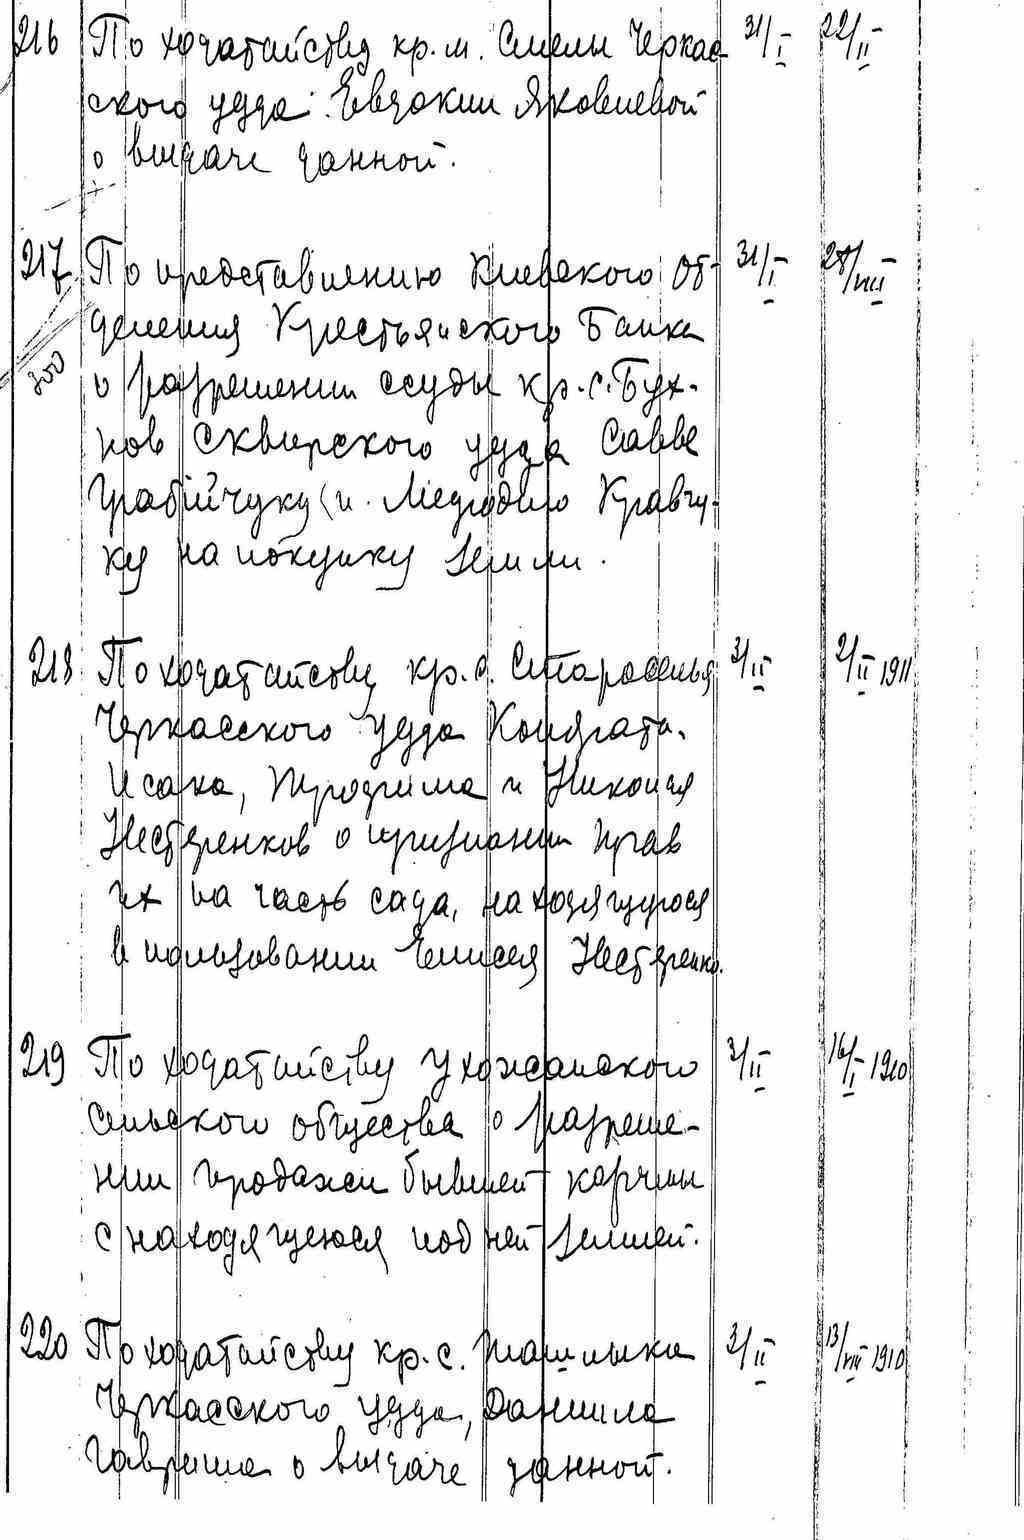 216 По ходатайству кр. м. Смелы Черкас- 31/I 22/II
ского уезда Евдокии Яковлевой
о выдаче данной.
217 По представлению Киевского От- 31/I 28/VIII
деления Крестьянского Банка
300 о разрешении ссуды кр. с. Бух-
нов Сквирского уезда Савве
Грабійчуку и Мефодию Кравчу-
ку на покупку земли.
218 По ходатайству кр. с. Староселья 3/II 2/II 1911
Черкасского уезда Кондрата,
Исака, Трофима и Николая
Нестеренков о признании прав
их на часть сада, находящугося
в пользовании Елисея Нестеренко.
219 По ходатайству Ухожанского 3/II 16/I 1910
сельского общества о разреше-
нии продажи бывшей корчмы
с находящеюся под ней землей.
220 По ходатайству кр. с. Ташлыка 3/II 13/VIII 1910
Черкасского уезда, Даниила
Гавриша о выдаче данной.